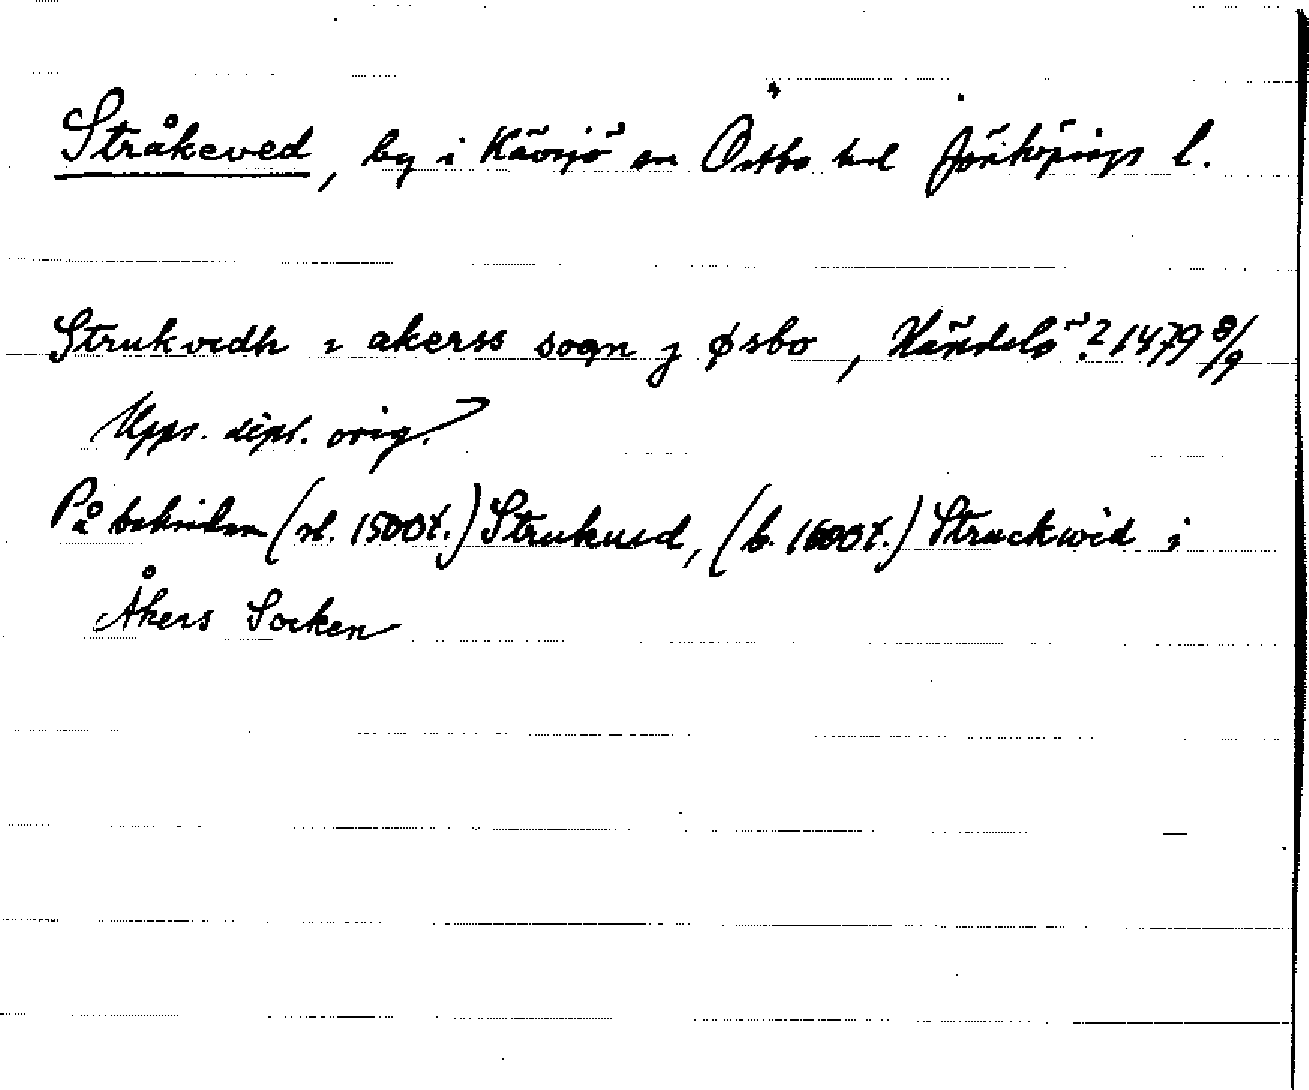 Stråkeved, by i Kävsjö sn Östbo hd Jönköpings l.
Strukvedh i akerss sogn j øsbo, Händelö? 1479 8/9
Upps. dipl. orig.
På baksidan (sl. 1500t.) Strukued, (b. 1600t.) Struckwid i
Åkers Socken